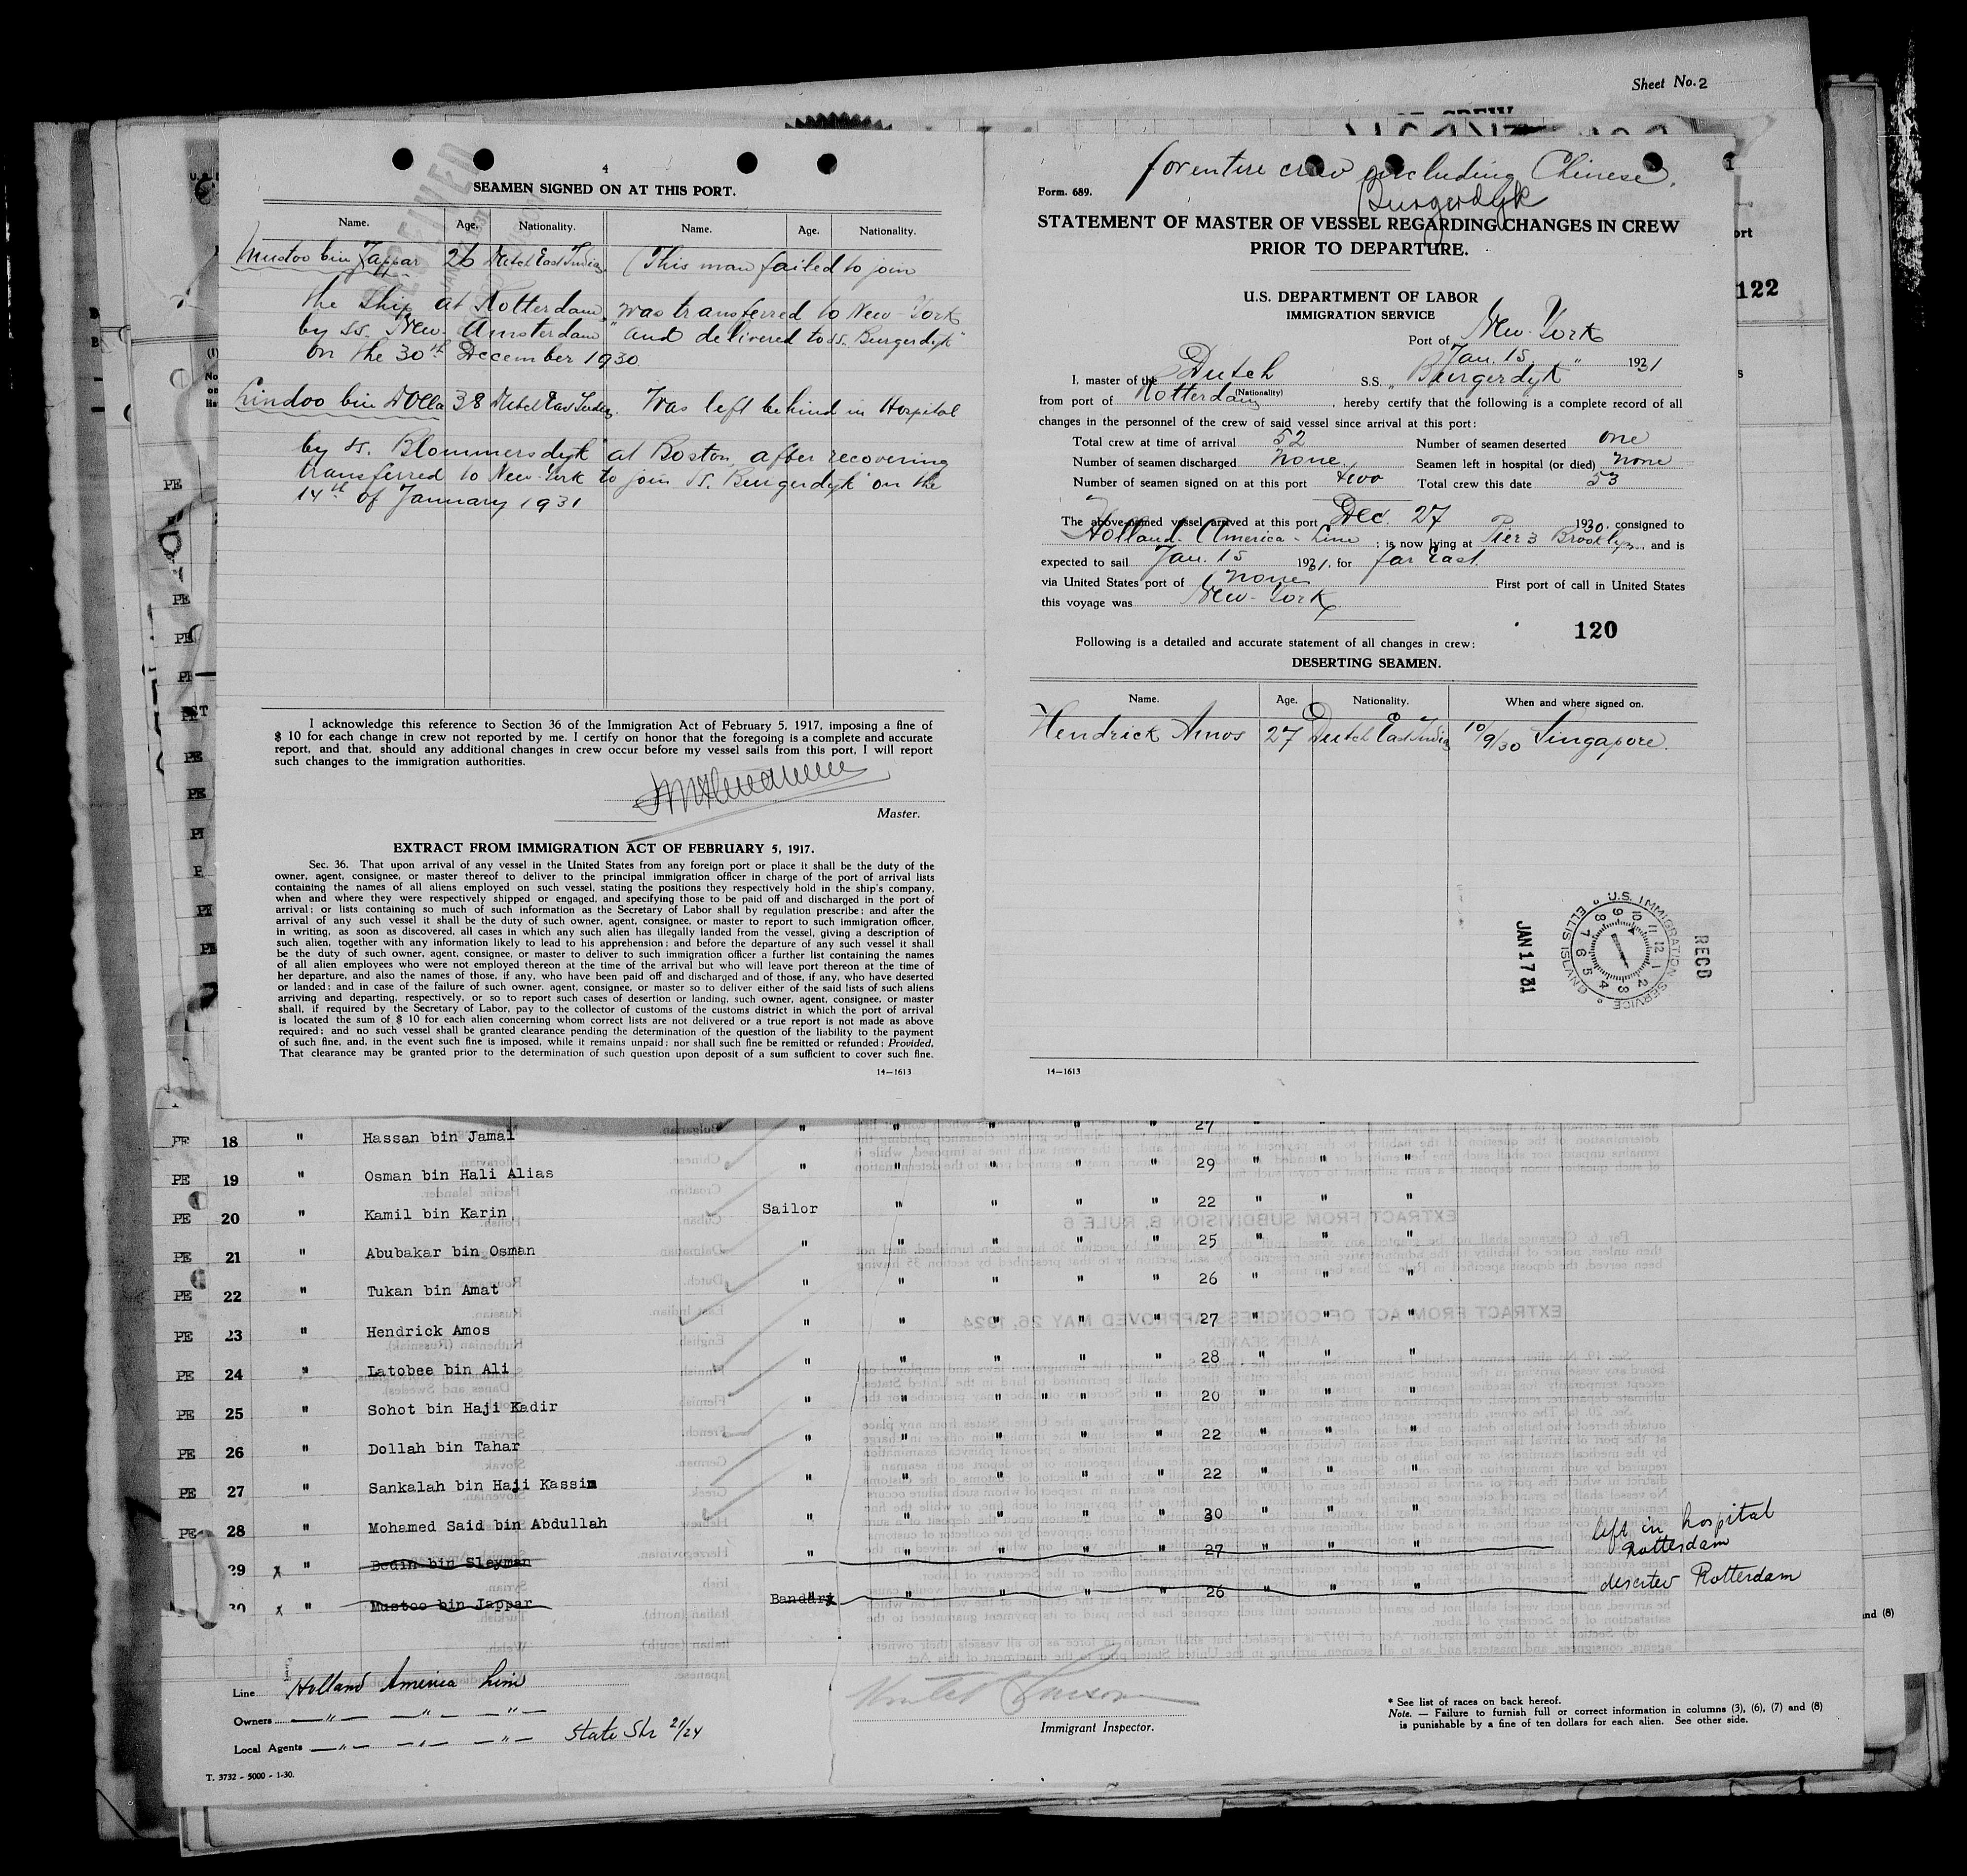 Sheet No. 2
4
SEAMEN SIGNED ON AT THIS PORT.
Name. Age. Nationality. Name. Age. Nationality.
Mustoo bin Jappar 26 Dutch East Indies (This man failed to join
the ship at Rotterdam, was transferred to New-York
by ss. New-Amsterdam" and delivered to ss. Burgerdyk"
on the 30th December 1930.
Lindoo bin Dolla 38 Dutch East Indies. Was left behind in Hospital
by ss. Blommersdyk" at Boston after recovering
transferred to New-York to join ss. Burgerdyk" on the
14th of January 1931
I acknowledge this reference to Section 36 of the Immigration Act of February 5, 1917, imposing a fine of
$ 10 for each change in crew not reported by me. I certify on honor that the foregoing is a complete and accurate
report, and that, should any additional changes in crew occur before my vessel sails from this port, I will report
such changes to the immigration authorities.
Master.
EXTRACT FROM IMMIGRATION ACT OF FEBRUARY 5, 1917.
Sec. 36. That upon arrival of any vessel in the United States from any foreign port or place it shall be the duty of the
owner, agent, consignee, or master thereof to deliver to the principal immigration officer in charge of the port of arrival lists
containing the names of all aliens employed on such vessel, stating the positions they respectively hold in the ship's company,
when and where they were respectively shipped or engaged, and specifying those to be paid off and discharged in the port of
arrival: or lists containing so much of such information as the Secretary of Labor shall by regulation prescribe: and after the
arrival of any such vessel it shall be the duty of such owner, agent, consignee, or master to report to such immigration officer,
in writing, as soon as discovered, all cases in which any such alien has illegally landed from the vessel, giving a description of
such alien, together with any information likely to lead to his apprehension; and before the departure of any such vessel it shall
be the duty of such owner, agent, consignee, or master to deliver to such immigration officer a further list containing the names
of all alien employees who were not employed thereon at the time of the arrival but who will leave port thereon at the time of
her departure, and also the names of those, if any, who have been paid off and discharged and of those, if any, who have deserted
or landed: and in case of the failure of such owner. agent, consignee, or master so to deliver either of the said lists of such aliens
arriving and departing, respectively, or so to report such cases of desertion or landing, such owner, agent, consignee, or master
shall, if required by the Secretary of Labor, pay to the collector of customs of the customs district in which the port of arrival
is located the sum of $ 10 for each alien concerning whom correct lists are not delivered or a true report is not made as above
required: and no such vessel shall be granted clearance pending the determination of the question of the liability to the payment
of such fine, and, in the event such fine is imposed, while it remains unpaid: nor shall such fine be remitted or refunded: Provided,
That clearance may be granted prior to the determination of such question upon deposit of a sum sufficient to cover such fine.
14—1613
for entire crew including Chinese.
Form. 689.
Burgerdyk
STATEMENT OF MASTER OF VESSEL REGARDING CHANGES IN CREW
PRIOR TO DEPARTURE.
U.S. DEPARTMENT OF LABOR
IMMIGRATION SERVICE
Port of New-York
Jan. 15 " 1931
I. master of the Dutch S.S. „ Burgerdyk
(Nationality)
from port of Rotterdam , hereby certify that the following is a complete record of all
changes in the personnel of the crew of said vessel since arrival at this port:
Total crew at time of arrival 52 Number of seamen deserted one
Number of seamen discharged none. Seamen left in hospital (or died) none
Number of seamen signed on at this port two Total crew this date 53
The above-named vessel arrived at this port Dec. 27 1930. consigned to
Holland-America-Line ; is now lying at Pier 3 Brooklyn, and is
expected to sail Jan. 15 1931, for far East
via United States port of none First port of call in United States
this voyage was New-York
120
Following is a detailed and accurate statement of all changes in crew:
DESERTING SEAMEN.
Name. Age. Nationality. When and where signed on.
Hendrick Amos 27 Dutch East Indies 10/9/30 Singapore.
RECD
U.S. IMMIGRATION SERVICE
ELLIS ISLAND
JAN 17 31
14—1613
122
PE 18 " Hassan bin Jamal " " " " " 27 " " "
PE 19 " Osman bin Hali Alias " " " " " 29 " " "
PE 20 " Kamil bin Karin Sailor " " " " 22 " " "
PE 21 " Abubakar bin Osman " " " " " 25 " " "
PE 22 " Tukan bin Amat " " " " " 26 " " "
PE 23 " Hendrick Amos " " " " " 27 " " "
PE 24 " Latobee bin Ali " " " " " 28 " " "
PE 25 " Sohot bin Haji Kadir " " " " " 20 " " "
PE 26 " Dollah bin Tahar " " " " " 22 " " "
PE 27 " Sankalah bin Haji Kassim " " " " " 22 " " "
PE 28 " Mohamed Said bin Abdullah " " " " " 30 " " "
29 x " Bedin bin Sleyman " " " " " 27 " " " left in hospital Rotterdam
30 x " Mustoo bin Jappar Bandary " " " " 26 " " " deserted Rotterdam
and (8)
Line Holland America Line
Owners — " — — " — — " —
Local Agents — " — — " — — " — State Str 21/24
T. 3732 - 5000 - 1-30.
Immigrant Inspector.
* See list of races on back hereof.
Note. — Failure to furnish full or correct information in columns (3), (6), (7) and (8)
is punishable by a fine of ten dollars for each alien. See other side.